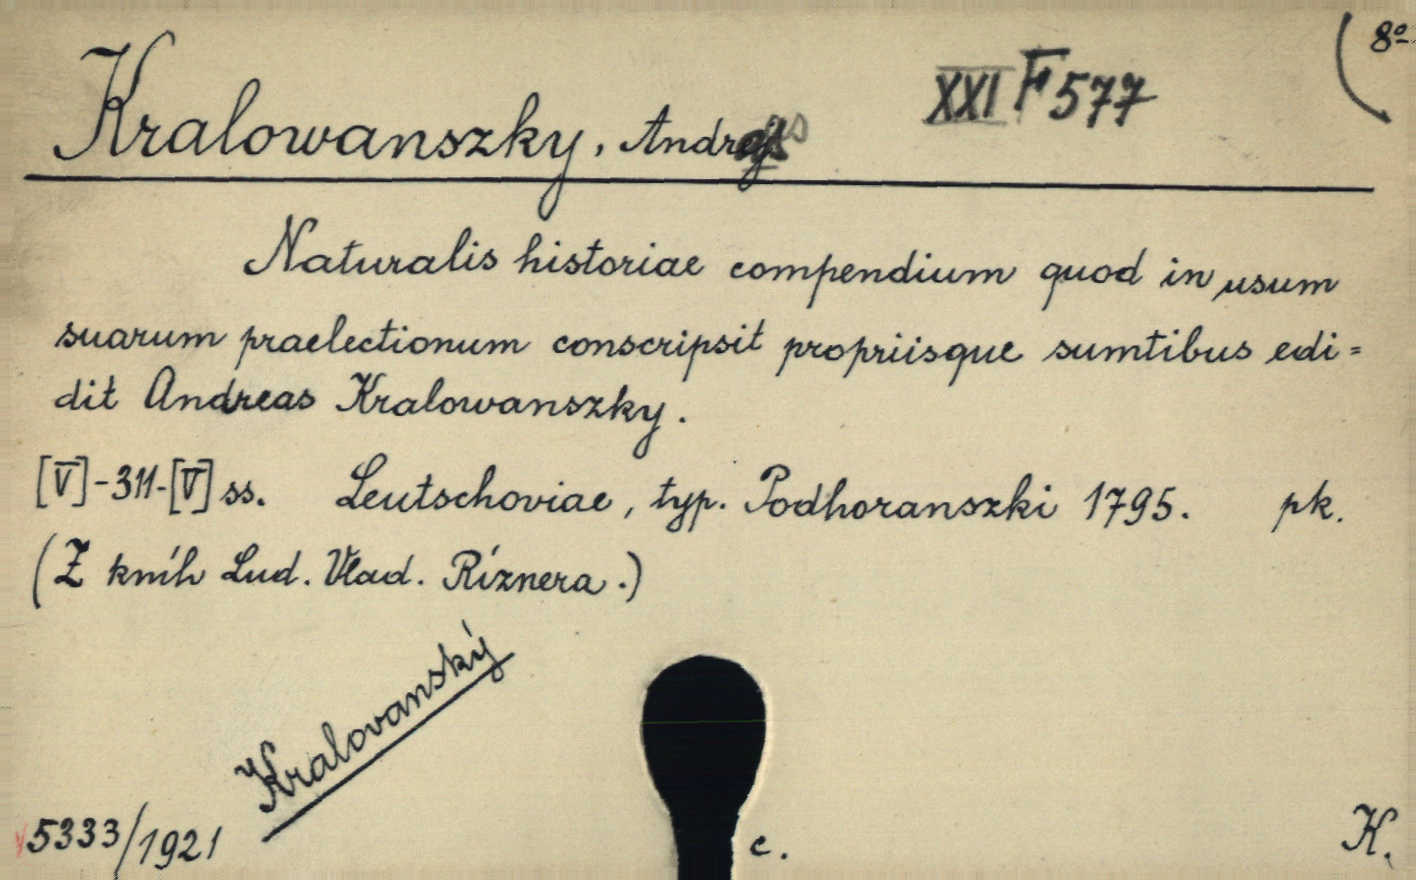 8º
XXI F 577
Kralowanszky, Andrej
Naturalis historiae compendium quod in usum
suarum praelectionum conscripsit propriisque sumtibus edi=
dit Andreas Kralowanszky.
[V]-311-[V] ss. Leutschoviae, typ. Podhoranszki 1795. pk.
(Z kníh Lud. Vlad. Ríznera.)
Kralovanský
5333/1921
c.
K.